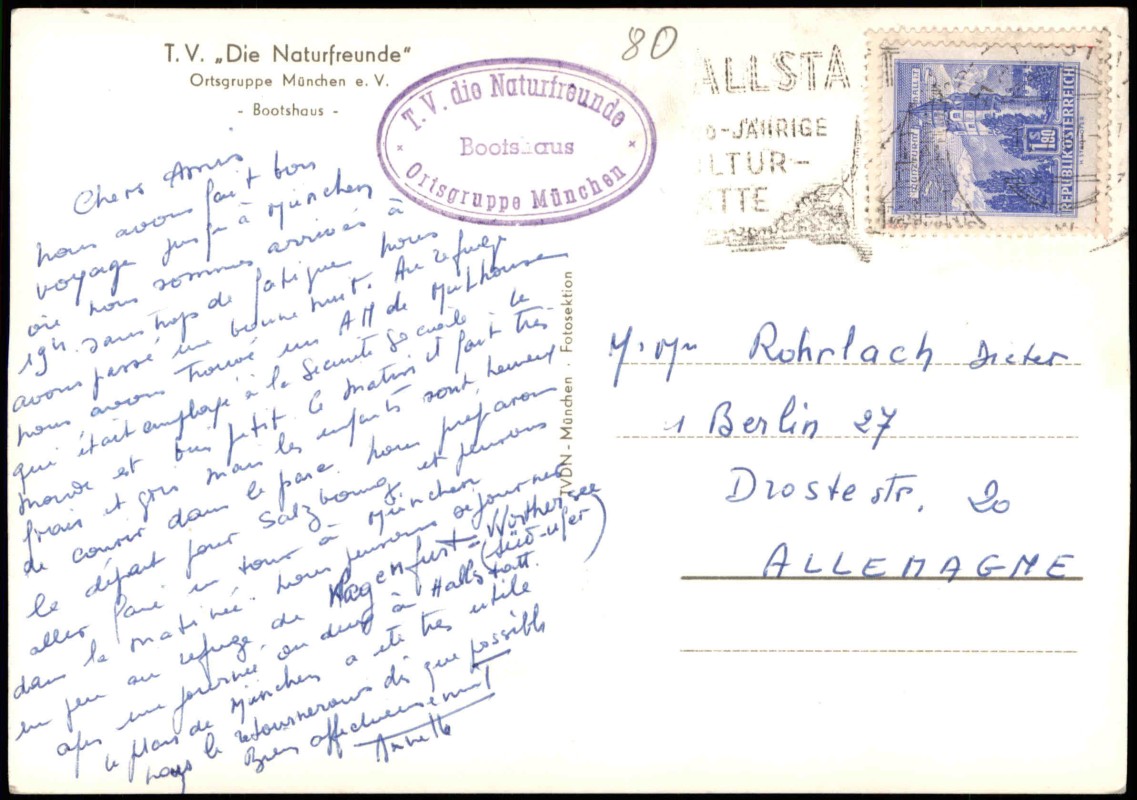 T. V. „Die Naturfreunde"
Ortsgruppe München e. V.
- Bootshaus -
T.V. die Naturfreunde
Bootshaus
Ortsgruppe München
80
ALLSTA
-JÄHRIGE
LTUR-
TTE
REPUBLIK ÖSTERREICH
1 S 80
Chers Amis
nous avons fait bon
voyage jusqu'à München
où nous sommes arrivés à
19h. sans trop de fatigue nous
avons passé une bonne nuit. Au refuge
nous avons trouvé un AN de Mulhouse
qui était employé à la Sécurité Sociale le
monde est bien petit. le matin il fait très
frais et gris mais les enfants sont heureux
de courir dans le parc. nous préparons
le départ pour Salzbourg et pensons
aller faire un tour à München
dans la matinée. nous pensons séjourner
un peu au refuge de Klagenfurt-Wörthersee
(Süd-ufer)
après une journée ou deux à Hallstatt.
le plan de München a été très utile
nous le retournerons dès que possible
Bien affectueusement
Annette
TVDN - München · Fotosektion
Rohrlach Dieter
1 Berlin 27
Drostestr. 20
ALLEMAGNE